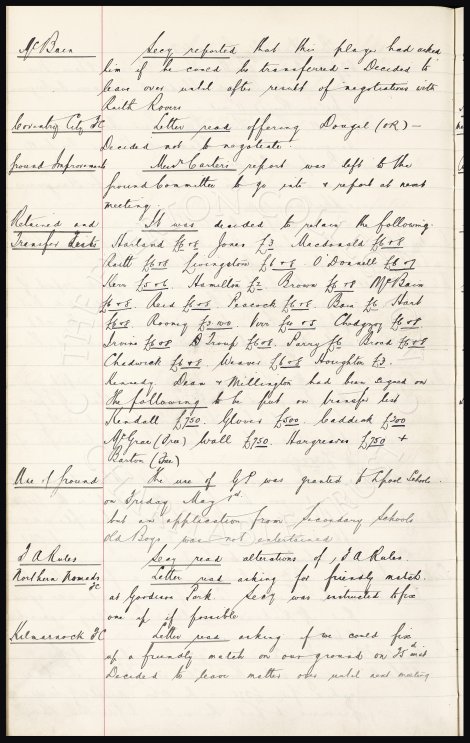 McBain Secy reported that this player had asked
him if he could be transferred - Decided to
leave over until after result of negotiations with
Raith Rovers
Coventry City FC Letter read offering Dougal (OR) -
Decided not to negotiate.
Ground Improvements Messrs Carters report was left to the
Ground Committee to go into & report at next
meeting.
Retained and It was decided to retain the following.
Transfer Lists Harland £6+8 Jones £3 Macdonald £6+8
Raitt £6+8 Livingston £6+8 O'Donnell £8+7
Kerr £5+6 Hamilton £2 Brown £6+8 McBain
£6+8 Reid £6+8. Peacock £6+8. Bain £6 Hart
£6+8 Rooney Virr £4+5 Chedgzoy £6+8
Irvine £6+8 D Troup £6+8. Parry £6 Broad £6+8
Chadwick £6+8 Weaver £6+8 Houghton £3.
Kennedy, Dean & Millington had been signed on
The following to be put on transfer list
Kendall £750. Glover £500. Caddick £200
McGrae (Free) Wall £750. Hargreaves £750 +
Barton (Free)
Use of Ground The use of G.P was granted to Lpool Schools.
on Friday May 1st.
but an application from Secondary Schools
Old Boys was not entertained
F A Rules Secy read alterations of F A Rules
Northern Nomads FC Letter read asking for friendly match.
at Goodison Park Secy was instructed to fix
one up if possible
Kilmarnock FC Letter read asking if we could fix
up a friendly match on our ground on 25th inst
Decided to leave matter over until next meeting